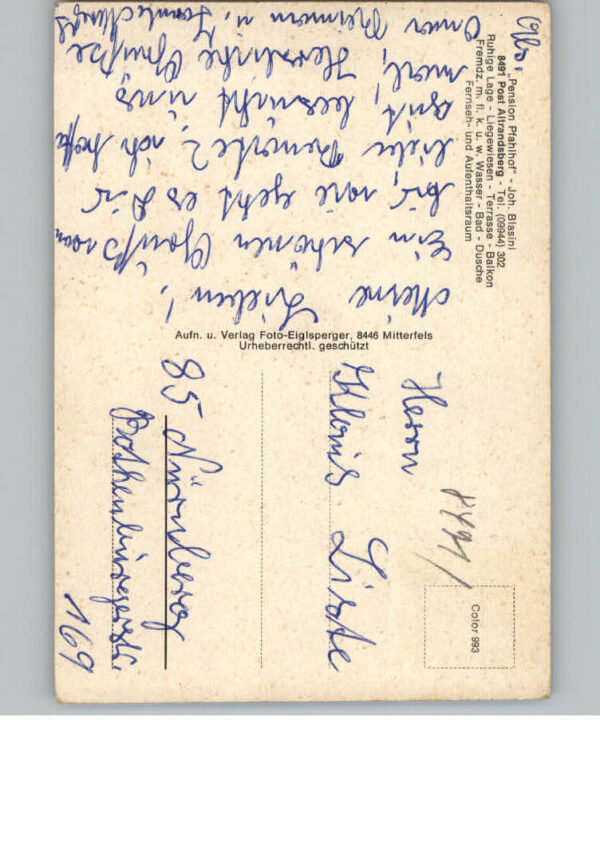 "Pension Pfahlhof" - Joh. Blasini
8491 Post Altrandsberg - Tel. (09944) 302
Ruhige Lage - Liegewiesen - Terrasse - Balkon
Fremdz. m. fl. k. u. w. Wasser - Bad - Dusche
Fernseh- und Aufenthaltsraum
Meine Lieben!
Ein schönen Gruß von
hir, wie geht es Dir
lieber ? ich hoffe
gut, besucht uns
mal, Herzliche Grüße
Omar u.
Aufn. u. Verlag Foto-Eiglsperger, 8446 Mitterfels
Urheberrechtl. geschützt
Color 993
Herrn
Klaus Liste
85 Nürnberg
Rothenburgerstr.
169